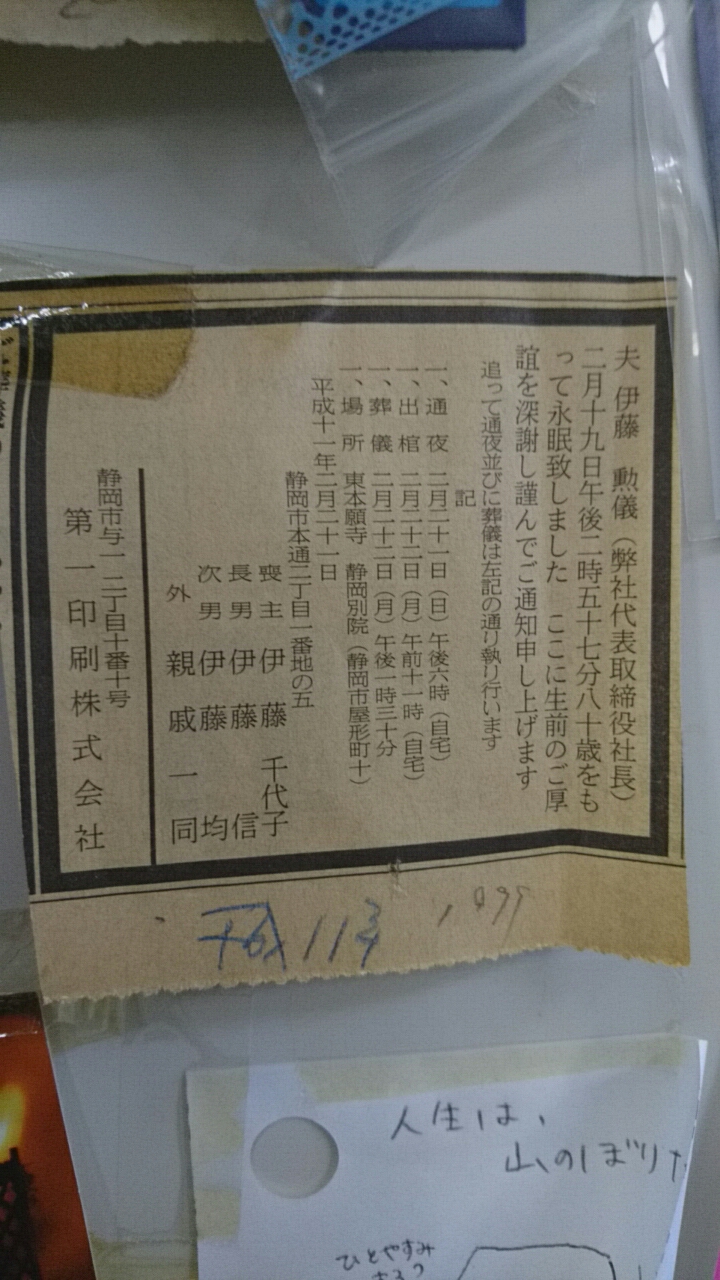 夫 伊藤 勲儀（弊社代表取締役社長）
二月十九日午後二時五十七分八十歳をも
って永眠致しました ここに生前のご厚
誼を深謝し謹んでご通知申し上げます
追って通夜並びに葬儀は左記の通り執り行います
記
一、通夜 二月二十一日（日）午後六時（自宅）
一、出棺 二月二十二日（月）午前十一時（自宅）
一、葬儀 二月二十二日（月）午後一時三十分
一、場所 東本願寺 静岡別院（静岡市屋形町十）
平成十一年二月二十一日
静岡市本通二丁目一番地の五
喪主 伊藤 千代子
長男 伊藤 信
次男 伊藤 均
外 親戚一同
静岡市与一二丁目十番十号
第一印刷株式会社
1999
人生は、
山のぼり
ひとやすみ